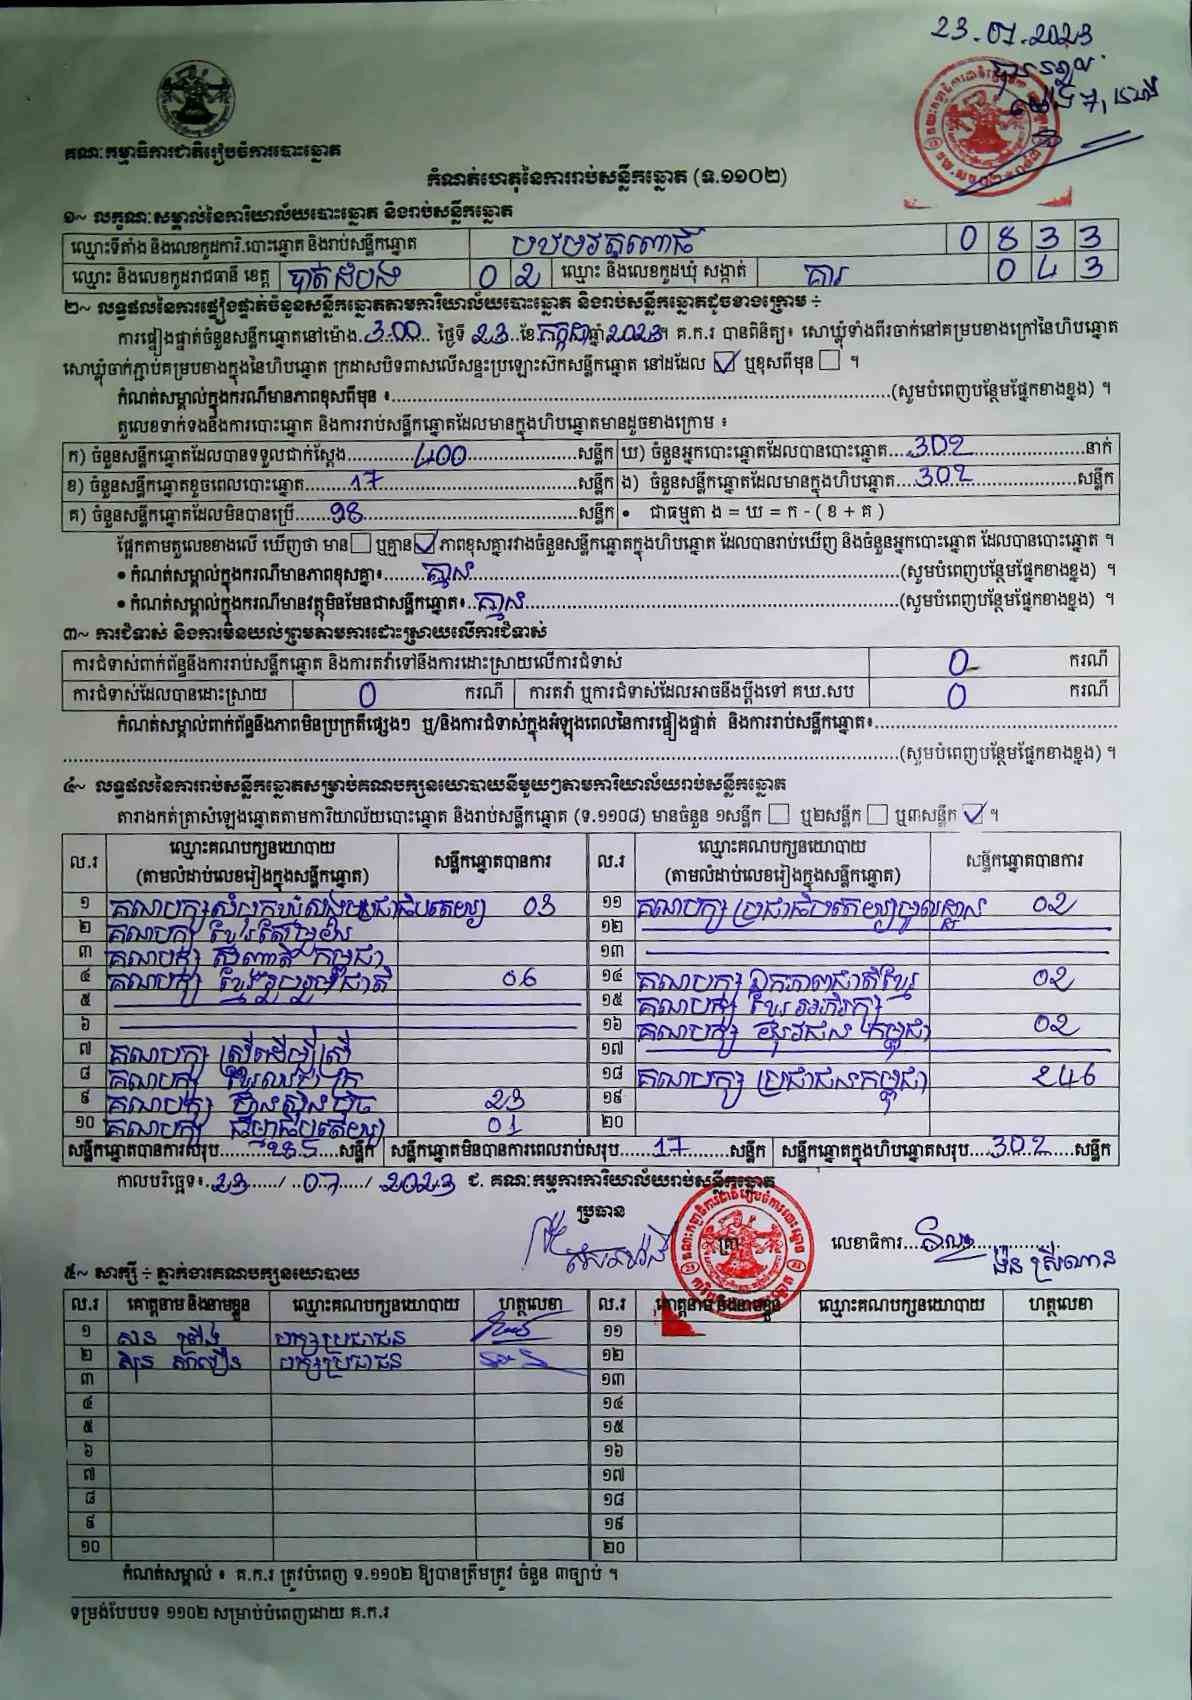 23.07.2023
គណៈកម្មាធិការជាតិរៀបចំការបោះឆ្នោត
កំណត់ហេតុនៃការរាប់សន្លឹកឆ្នោត (ទ.១១០២)
១~ លក្ខណៈសម្គាល់នៃការិយាល័យបោះឆ្នោត និងរាប់សន្លឹកឆ្នោត
ឈ្មោះទីតាំង និងលេខកូដការិ.បោះឆ្នោត និងរាប់សន្លឹកឆ្នោត 0 8 3 3
ឈ្មោះ និងលេខកូដរាជធានី ខេត្ត បាត់ដំបង 0 2 ឈ្មោះ និងលេខកូដឃុំ សង្កាត់ តារ 0 4 3
២~ លទ្ធផលនៃការផ្ទៀងផ្ទាត់ចំនួនសន្លឹកឆ្នោតតាមការិយាល័យបោះឆ្នោត និងរាប់សន្លឹកឆ្នោតដូចខាងក្រោម ÷
ការផ្ទៀងផ្ទាត់ចំនួនសន្លឹកឆ្នោតនៅម៉ោង 3:00 ថ្ងៃទី 23 ខែ កក្កដា ឆ្នាំ 2023 ។ គ.ក.រ បានពិនិត្យ៖ សោឃ្លុំទាំងពីរចាក់នៅគម្របខាងក្រៅនៃហិបឆ្នោត
សោឃ្លុំចាក់ភ្ជាប់គម្របខាងក្នុងនៃហិបឆ្នោត ក្រដាសបិទពាសលើសន្ទះប្រឡោះស៊កសន្លឹកឆ្នោត នៅដដែល ☑ ឬខុសពីមុន ☐ ។
កំណត់សម្គាល់ក្នុងករណីមានភាពខុសពីមុន ៖ (សូមបំពេញបន្ថែមផ្នែកខាងខ្នង) ។
តួលេខទាក់ទងនឹងការបោះឆ្នោត និងការរាប់សន្លឹកឆ្នោតដែលមានក្នុងហិបឆ្នោតមានដូចខាងក្រោម ៖
ក) ចំនួនសន្លឹកឆ្នោតដែលបានទទួលជាក់ស្តែង 400 សន្លឹក ឃ) ចំនួនអ្នកបោះឆ្នោតដែលបានបោះឆ្នោត 302 នាក់
ខ) ចំនួនសន្លឹកឆ្នោតខូចពេលបោះឆ្នោត 17 សន្លឹក ង) ចំនួនសន្លឹកឆ្នោតដែលមានក្នុងហិបឆ្នោត 302 សន្លឹក
គ) ចំនួនសន្លឹកឆ្នោតដែលមិនបានប្រើ 98 សន្លឹក • ជាធម្មតា ង = ឃ = ក - ( ខ + គ )
ផ្អែកតាមតួលេខខាងលើ ឃើញថា មាន ☐ ឬគ្មាន ☑ ភាពខុសគ្នារវាងចំនួនសន្លឹកឆ្នោតក្នុងហិបឆ្នោត ដែលបានរាប់ឃើញ និងចំនួនអ្នកបោះឆ្នោត ដែលបានបោះឆ្នោត ។
• កំណត់សម្គាល់ក្នុងករណីមានភាពខុសគ្នា៖ គ្មាន (សូមបំពេញបន្ថែមផ្នែកខាងខ្នង) ។
• កំណត់សម្គាល់ក្នុងករណីមានវត្ថុមិនមែនជាសន្លឹកឆ្នោត៖ គ្មាន (សូមបំពេញបន្ថែមផ្នែកខាងខ្នង) ។
៣~ ការជំទាស់ និងការមិនយល់ព្រមតាមការដោះស្រាយលើការជំទាស់
ការជំទាស់ពាក់ព័ន្ធនឹងការរាប់សន្លឹកឆ្នោត និងការតវ៉ាទៅនឹងការដោះស្រាយលើការជំទាស់ 0 ករណី
ការជំទាស់ដែលបានដោះស្រាយ 0 ករណី ការតវ៉ា ឬការជំទាស់ដែលអាចនឹងប្តឹងទៅ គឃ.សប 0 ករណី
កំណត់សម្គាល់ពាក់ព័ន្ធនឹងភាពមិនប្រក្រតីផ្សេងៗ ឬ/និងការជំទាស់ក្នុងអំឡុងពេលនៃការផ្ទៀងផ្ទាត់ និងការរាប់សន្លឹកឆ្នោត៖
(សូមបំពេញបន្ថែមផ្នែកខាងខ្នង) ។
៤~ លទ្ធផលនៃការរាប់សន្លឹកឆ្នោតសម្រាប់គណបក្សនយោបាយនីមួយៗតាមការិយាល័យរាប់សន្លឹកឆ្នោត
តារាងកត់ត្រាសំឡេងឆ្នោតតាមការិយាល័យបោះឆ្នោត និងរាប់សន្លឹកឆ្នោត (ទ.១១០៨) មានចំនួន ១សន្លឹក ☐ ឬ២សន្លឹក ☐ ឬ៣សន្លឹក ☑ ។
ល.រ ឈ្មោះគណបក្សនយោបាយ (តាមលំដាប់លេខរៀងក្នុងសន្លឹកឆ្នោត) សន្លឹកឆ្នោតបានការ ល.រ ឈ្មោះគណបក្សនយោបាយ (តាមលំដាប់លេខរៀងក្នុងសន្លឹកឆ្នោត) សន្លឹកឆ្នោតបានការ
១ គណបក្ស សំបុកឃ្មុំសង្គមប្រជាធិបតេយ្យ 03 ១១ គណបក្ស ប្រជាធិបតេយ្យមូលដ្ឋាន 02
២ គណបក្ស ខ្មែរតែមួយ ១២
៣ គណបក្ស សញ្ជាតិ កម្ពុជា ១៣
៤ គណបក្ស ខ្មែររួបរួមជាតិ 06 ១៤ គណបក្ស ឯកភាពជាតិខ្មែរ 02
៥ ១៥ គណបក្ស ខ្មែរអភិរក្ស
៦ ១៦ គណបក្ស យុវជនកម្ពុជា 02
៧ គណបក្ស ស្ត្រីដើម្បីស្ត្រី ១៧
៨ គណបក្ស ខ្មែរឈប់ក្រ ១៨ គណបក្ស ប្រជាជនកម្ពុជា 246
៩ គណបក្ស ហ្វ៊ុនស៊ិនប៉ិច 23 ១៩
១០ គណបក្ស ធម្មាធិបតេយ្យ 01 ២០
សន្លឹកឆ្នោតបានការសរុប 285 សន្លឹក សន្លឹកឆ្នោតមិនបានការពេលរាប់សរុប 17 សន្លឹក សន្លឹកឆ្នោតក្នុងហិបឆ្នោតសរុប 302 សន្លឹក
កាលបរិច្ឆេទ៖ 23 / 07 / 2023 ជ. គណៈកម្មការការិយាល័យរាប់សន្លឹកឆ្នោត
ប្រធាន
ត្រា លេខាធិការ
ម៉ន ស្រីណាន
៥~ សាក្សី ÷ ភ្នាក់ងារគណបក្សនយោបាយ
ល.រ គោត្តនាម និងនាមខ្លួន ឈ្មោះគណបក្សនយោបាយ ហត្ថលេខា ល.រ គោត្តនាម និងនាមខ្លួន ឈ្មោះគណបក្សនយោបាយ ហត្ថលេខា
១ សាន បក្សប្រជាជន ១១
២ បក្សប្រជាជន ១២
៣ ១៣
៤ ១៤
៥ ១៥
៦ ១៦
៧ ១៧
៨ ១៨
៩ ១៩
១០ ២០
កំណត់សម្គាល់ ៖ គ.ក.រ ត្រូវបំពេញ ទ.១១០២ ឱ្យបានត្រឹមត្រូវ ចំនួន ៣ច្បាប់ ។
ទម្រង់បែបបទ ១១០២ សម្រាប់បំពេញដោយ គ.ក.រ